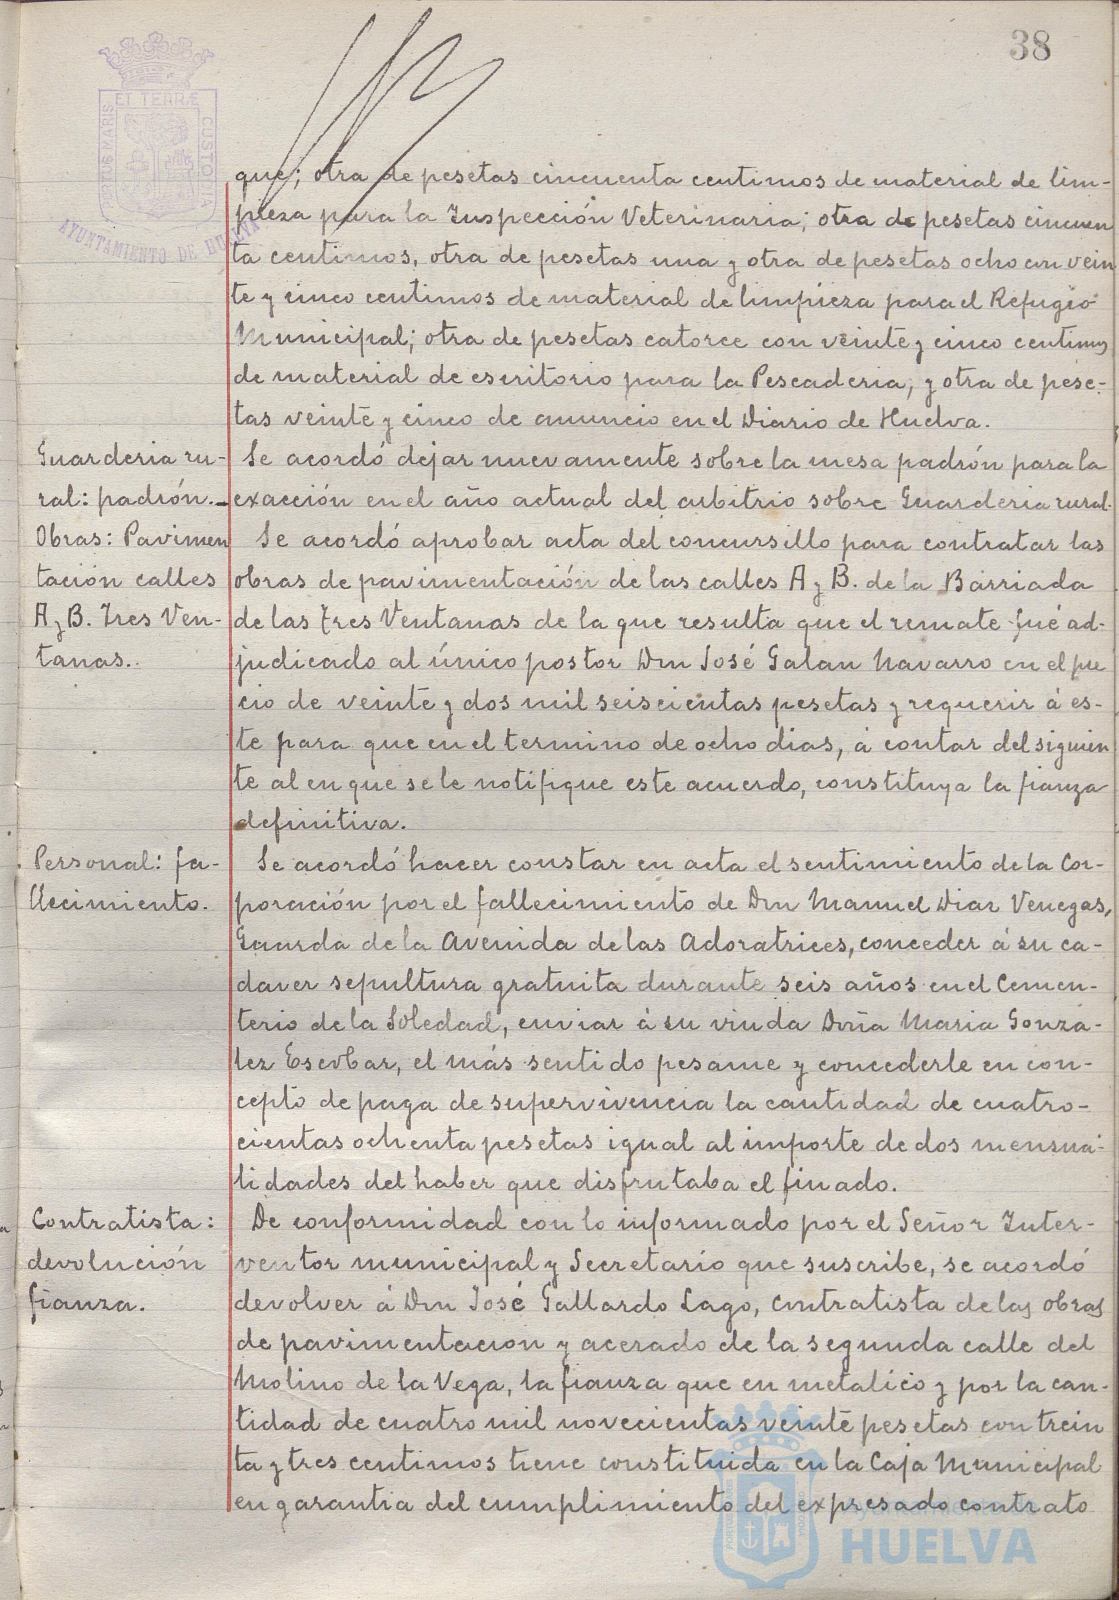 38
PORTUS MARIS
ET TERRÆ
CUSTODIA
AYUNTAMIENTO DE HUELVA
que; otra de pesetas cincuenta centimos de material de lim-
pieza para la Inspección Veterinaria; otra de pesetas cincuen
ta centimos, otra de pesetas una y otra de pesetas ocho con vein
te y cinco centimos de material de limpieza para el Refugio
Municipal; otra de pesetas catorce con veinte y cinco centimos
de material de escritorio para la Pescaderia; y otra de pese-
tas veinte y cinco de anuncio en el Diario de Huelva.
Guarderia ru-
ral: padrón.-
Se acordó dejar nuevamente sobre la mesa padrón para la
exacción en el año actual del arbitrio sobre Guarderia rural.
Obras: Pavimen
tación calles
A y B. Tres Ven-
tanas..
Se acordó aprobar acta del concursillo para contratar las
obras de pavimentación de las calles A y B. de la Barriada
de las tres Ventanas de la que resulta que el remate fué ad-
judicado al único postor Don José Galan Navarro en el pre
cio de veinte y dos mil seiscientas pesetas y requerir á es-
te para que en el termino de ocho dias, á contar del siguien
te al en que se le notifique este acuerdo, constituya la fianza
definitiva.
Personal: fa-
llecimiento.
Se acordó hacer constar en acta el sentimiento de la Cor-
poración por el fallecimiento de Don Manuel Diaz Venegas,
Guarda de la Avenida de las Adoratrices, conceder á su ca-
daver sepultura gratuita durante seis años en el Cemen-
terio de la Soledad, enviar á su viuda Doña Maria Gonza-
lez Escobar, el más sentido pesame y concederle en con-
cepto de paga de supervivencia la cantidad de cuatro-
cientas ochenta pesetas igual al importe de dos mensua-
lidades del haber que disfrutaba el finado.
Contratista:
devolución
fianza.
De conformidad con lo informado por el Señor Inter-
ventor municipal y Secretario que suscribe, se acordó
devolver á Don José Gallardo Lago, contratista de las obras
de pavimentacion y acerado de la segunda calle del
Molino de la Vega, la fianza que en metalico y por la can-
tidad de cuatro mil novecientas veinte pesetas con trein
ta y tres centimos tiene constituida en la Caja Municipal
en garantia del cumplimiento del expresado contrato
Ayuntamiento de
HUELVA